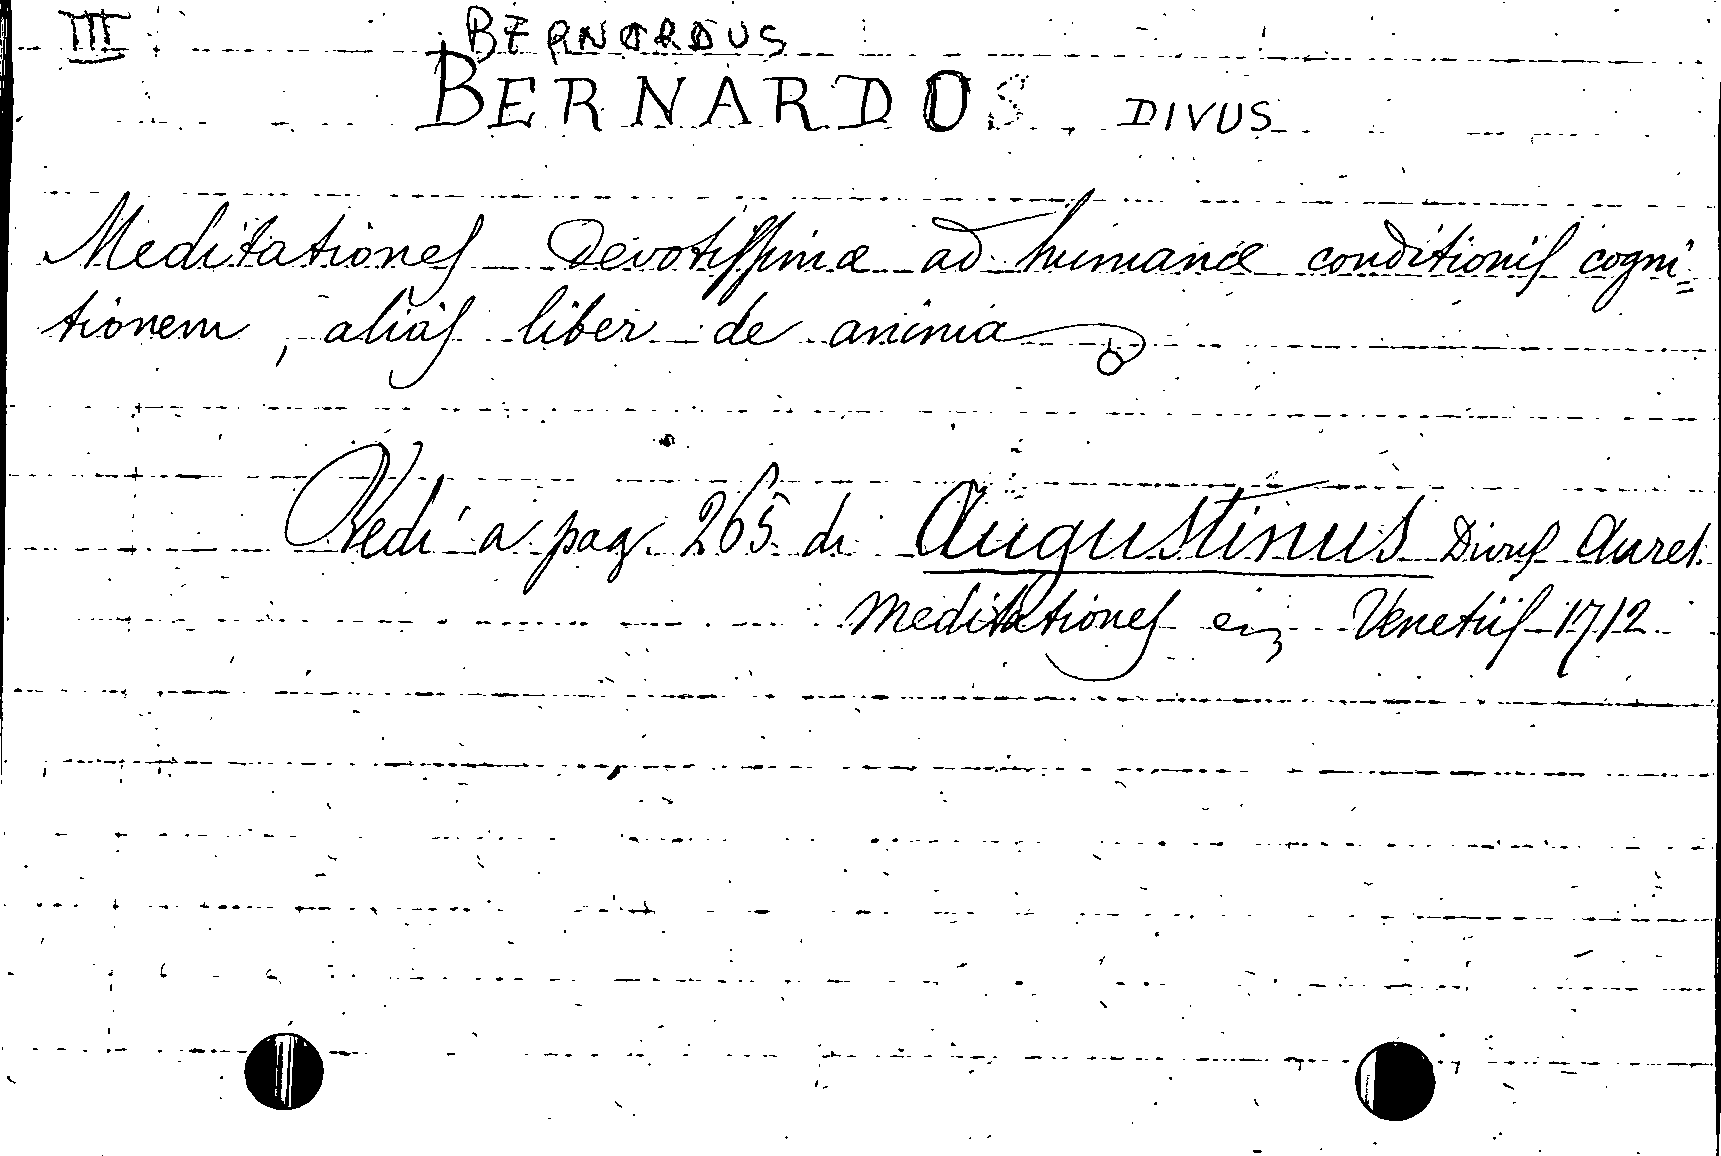 III BERNARDUS
BERNARDOS DIVUS
Meditationes Devotissimæ ad humanæ conditionis cogni=
tionem, alias liber de anima
Vedi a pag. 265 di Augustinus Divus Aurel.
Meditationes Venetiis 1712